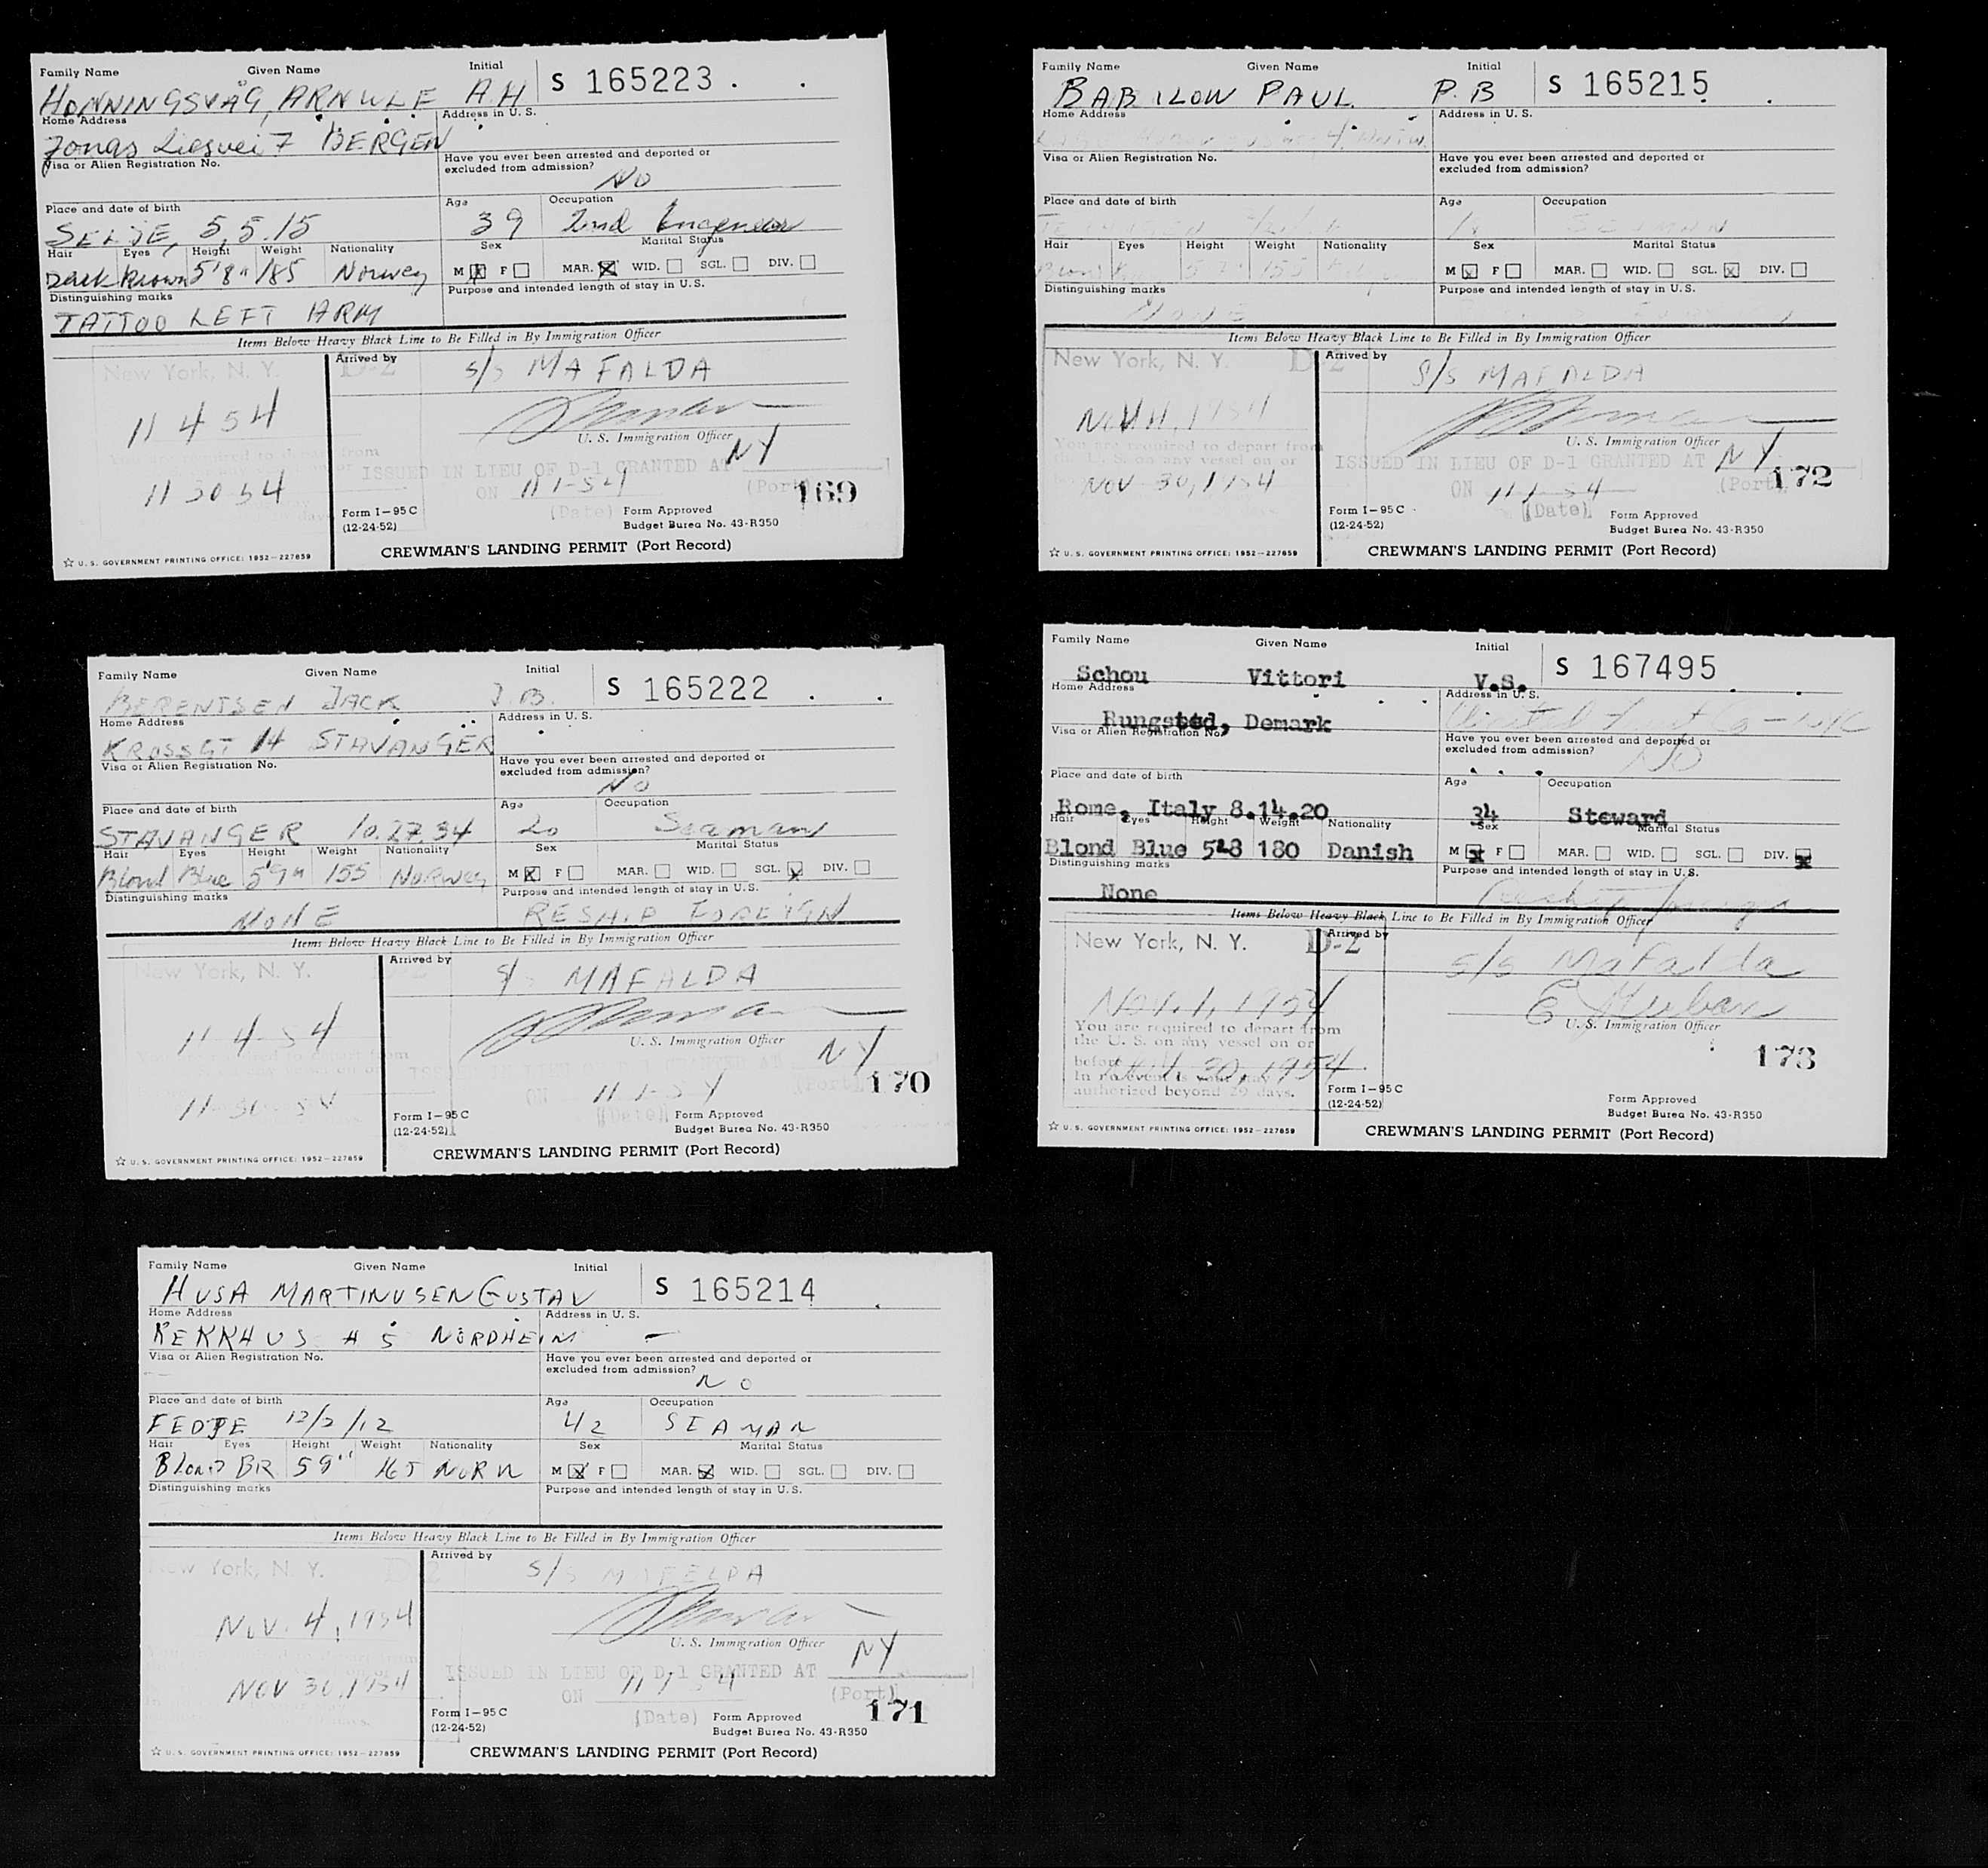 Family Name Given Name Initial S 165223
HONNINGSVÅG, ARNULF A.H
Home Address Address in U. S.
Jonas Liesvei 7 BERGEN
Visa or Alien Registration No. Have you ever been arrested and deported or
excluded from admission?
No
Place and date of birth Age Occupation
SELJE, 5.5.15 39 2nd Engineer
Hair Eyes Height Weight Nationality Sex Marital Status
Dark Brown 5'8" 185 Norweg M F MAR. WID. SGL. DIV.
Distinguishing marks Purpose and intended length of stay in U.S.
TATTOO LEFT ARM
Items Below Heavy Black Line to Be Filled in By Immigration Officer
New York, N. Y. D-2 Arrived by S/S MAFALDA
11 4 54
U. S. Immigration Officer
NY
ISSUED IN LIEU OF D-1 GRANTED AT
11 30 54 ON 11-1-54 (Port) 169
(Date)
Form I-95 C Form Approved
(12-24-52) Budget Burea No. 43-R350
CREWMAN'S LANDING PERMIT (Port Record)
U. S. GOVERNMENT PRINTING OFFICE: 1952-227859
Family Name Given Name Initial S 165222
BERENTSEN JACK J.B.
Home Address Address in U. S.
KROSSGT 14 STAVANGER
Visa or Alien Registration No. Have you ever been arrested and deported or
excluded from admission?
No
Place and date of birth Age Occupation
STAVANGER 10.27.34 20 Seaman
Hair Eyes Height Weight Nationality Sex Marital Status
Blond Blue 5'9" 155 Norweg M F MAR. WID. SGL. DIV.
Distinguishing marks Purpose and intended length of stay in U.S.
NONE RESHIP FOREIGN
Items Below Heavy Black Line to Be Filled in By Immigration Officer
New York, N. Y. Arrived by S/S MAFALDA
11-4-54
U. S. Immigration Officer
NY
ON 11-1-54 (Port) 170
(Date)
Form I-95 C Form Approved
(12-24-52) Budget Burea No. 43-R350
CREWMAN'S LANDING PERMIT (Port Record)
U. S. GOVERNMENT PRINTING OFFICE: 1952-227859
Family Name Given Name Initial S 165214
HUSA MARTINUSEN GUSTAV
Home Address Address in U. S.
REKKHUS # 5 NORDHEIM -
Visa or Alien Registration No. Have you ever been arrested and deported or
excluded from admission?
No
Place and date of birth Age Occupation
FEDJE 12/2/12 42 SEAMAN
Hair Eyes Height Weight Nationality Sex Marital Status
Blond BR 5 9" 165 NORW M F MAR. WID. SGL. DIV.
Distinguishing marks Purpose and intended length of stay in U.S.
Items Below Heavy Black Line to Be Filled in By Immigration Officer
New York, N. Y. D-2 Arrived by S/S MAFELDA
NOV. 4, 1954
U. S. Immigration Officer
NY
ISSUED IN LIEU OF D-1 GRANTED AT
NOV 30, 1954 ON 11 1 54 (Port) 171
(Date)
Form I-95 C Form Approved
(12-24-52) Budget Burea No. 43-R350
CREWMAN'S LANDING PERMIT (Port Record)
U. S. GOVERNMENT PRINTING OFFICE: 1952-227859
Family Name Given Name Initial S 165215
BABILOW PAUL P.B
Home Address Address in U. S.
Visa or Alien Registration No. Have you ever been arrested and deported or
excluded from admission?
Place and date of birth Age Occupation
Hair Eyes Height Weight Nationality Sex Marital Status
155 M F MAR. WID. SGL. DIV.
Distinguishing marks Purpose and intended length of stay in U.S.
NONE
Items Below Heavy Black Line to Be Filled in By Immigration Officer
New York, N. Y. D-2 Arrived by S/S MAFALDA
U. S. Immigration Officer
You are required to depart from
the U. S. on any vessel on or
NY
ISSUED IN LIEU OF D-1 GRANTED AT
NOV 30, 1954 ON 11 1 54 (Port) 172
(Date)
Form I-95 C Form Approved
(12-24-52) Budget Burea No. 43-R350
CREWMAN'S LANDING PERMIT (Port Record)
U. S. GOVERNMENT PRINTING OFFICE: 1952-227859
Family Name Given Name Initial S 167495
Schou Vittori V.S.
Home Address Address in U. S.
Rungsted, Demark United Fruit Co - NYC
Visa or Alien Registration No. Have you ever been arrested and deported or
excluded from admission?
No
Place and date of birth Age Occupation
Rome, Italy 8.14.20 34 Steward
Hair Eyes Height Weight Nationality Sex Marital Status
Blond Blue 5'8 180 Danish M F MAR. WID. SGL. DIV.
Distinguishing marks Purpose and intended length of stay in U.S.
None
Items Below Heavy Black Line to Be Filled in By Immigration Officer
New York, N. Y. D-2 Arrived by S/S Mafalda
Nov. 1, 1954
U. S. Immigration Officer
You are required to depart from
the U. S. on any vessel on or
before 30, 1954
In no event is your stay
authorized beyond 29 days.
173
Form I-95 C Form Approved
(12-24-52) Budget Burea No. 43-R350
CREWMAN'S LANDING PERMIT (Port Record)
U. S. GOVERNMENT PRINTING OFFICE: 1952-227859